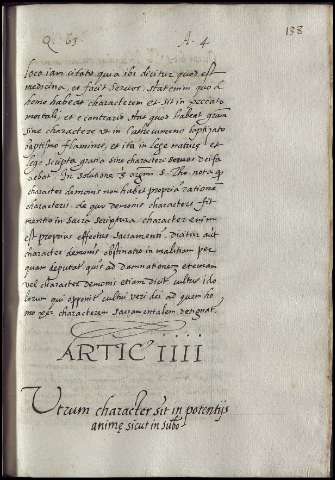 Q. 63 A. 4 138
loco iam citato quia ibi dicitur quod est
medicina, et facit servos. stat enim quod
homo habeat characterem et sit in peccato
mortali, et e contrario stat quod habeat gratiam
sine charactere ut in Cathecumeno baptizato
baptismo flaminis, et ita in lege naturę et
lege scripta gratia sine charactere servos dei fa
ciebat. In solutione 3. argum. S. Tho. nota q
character demonis non habet propria ratione
characteris. de quo demonis charactere fit
mentio in sacra scriptura. character enim
est proprius effectus sacramenti. dicitur aut
character demonis obstinatio in malitiam per
quam deputatur quis ad damnationem eternam
vel character demonis etiam dicitur cultus ido
lorum qui opponitur cultui veri dei ad quem ho
mo per characterem sacramentalem designatur.
ARTIC' IIII
Utrum character sit in potentijs
animę sicut in subo